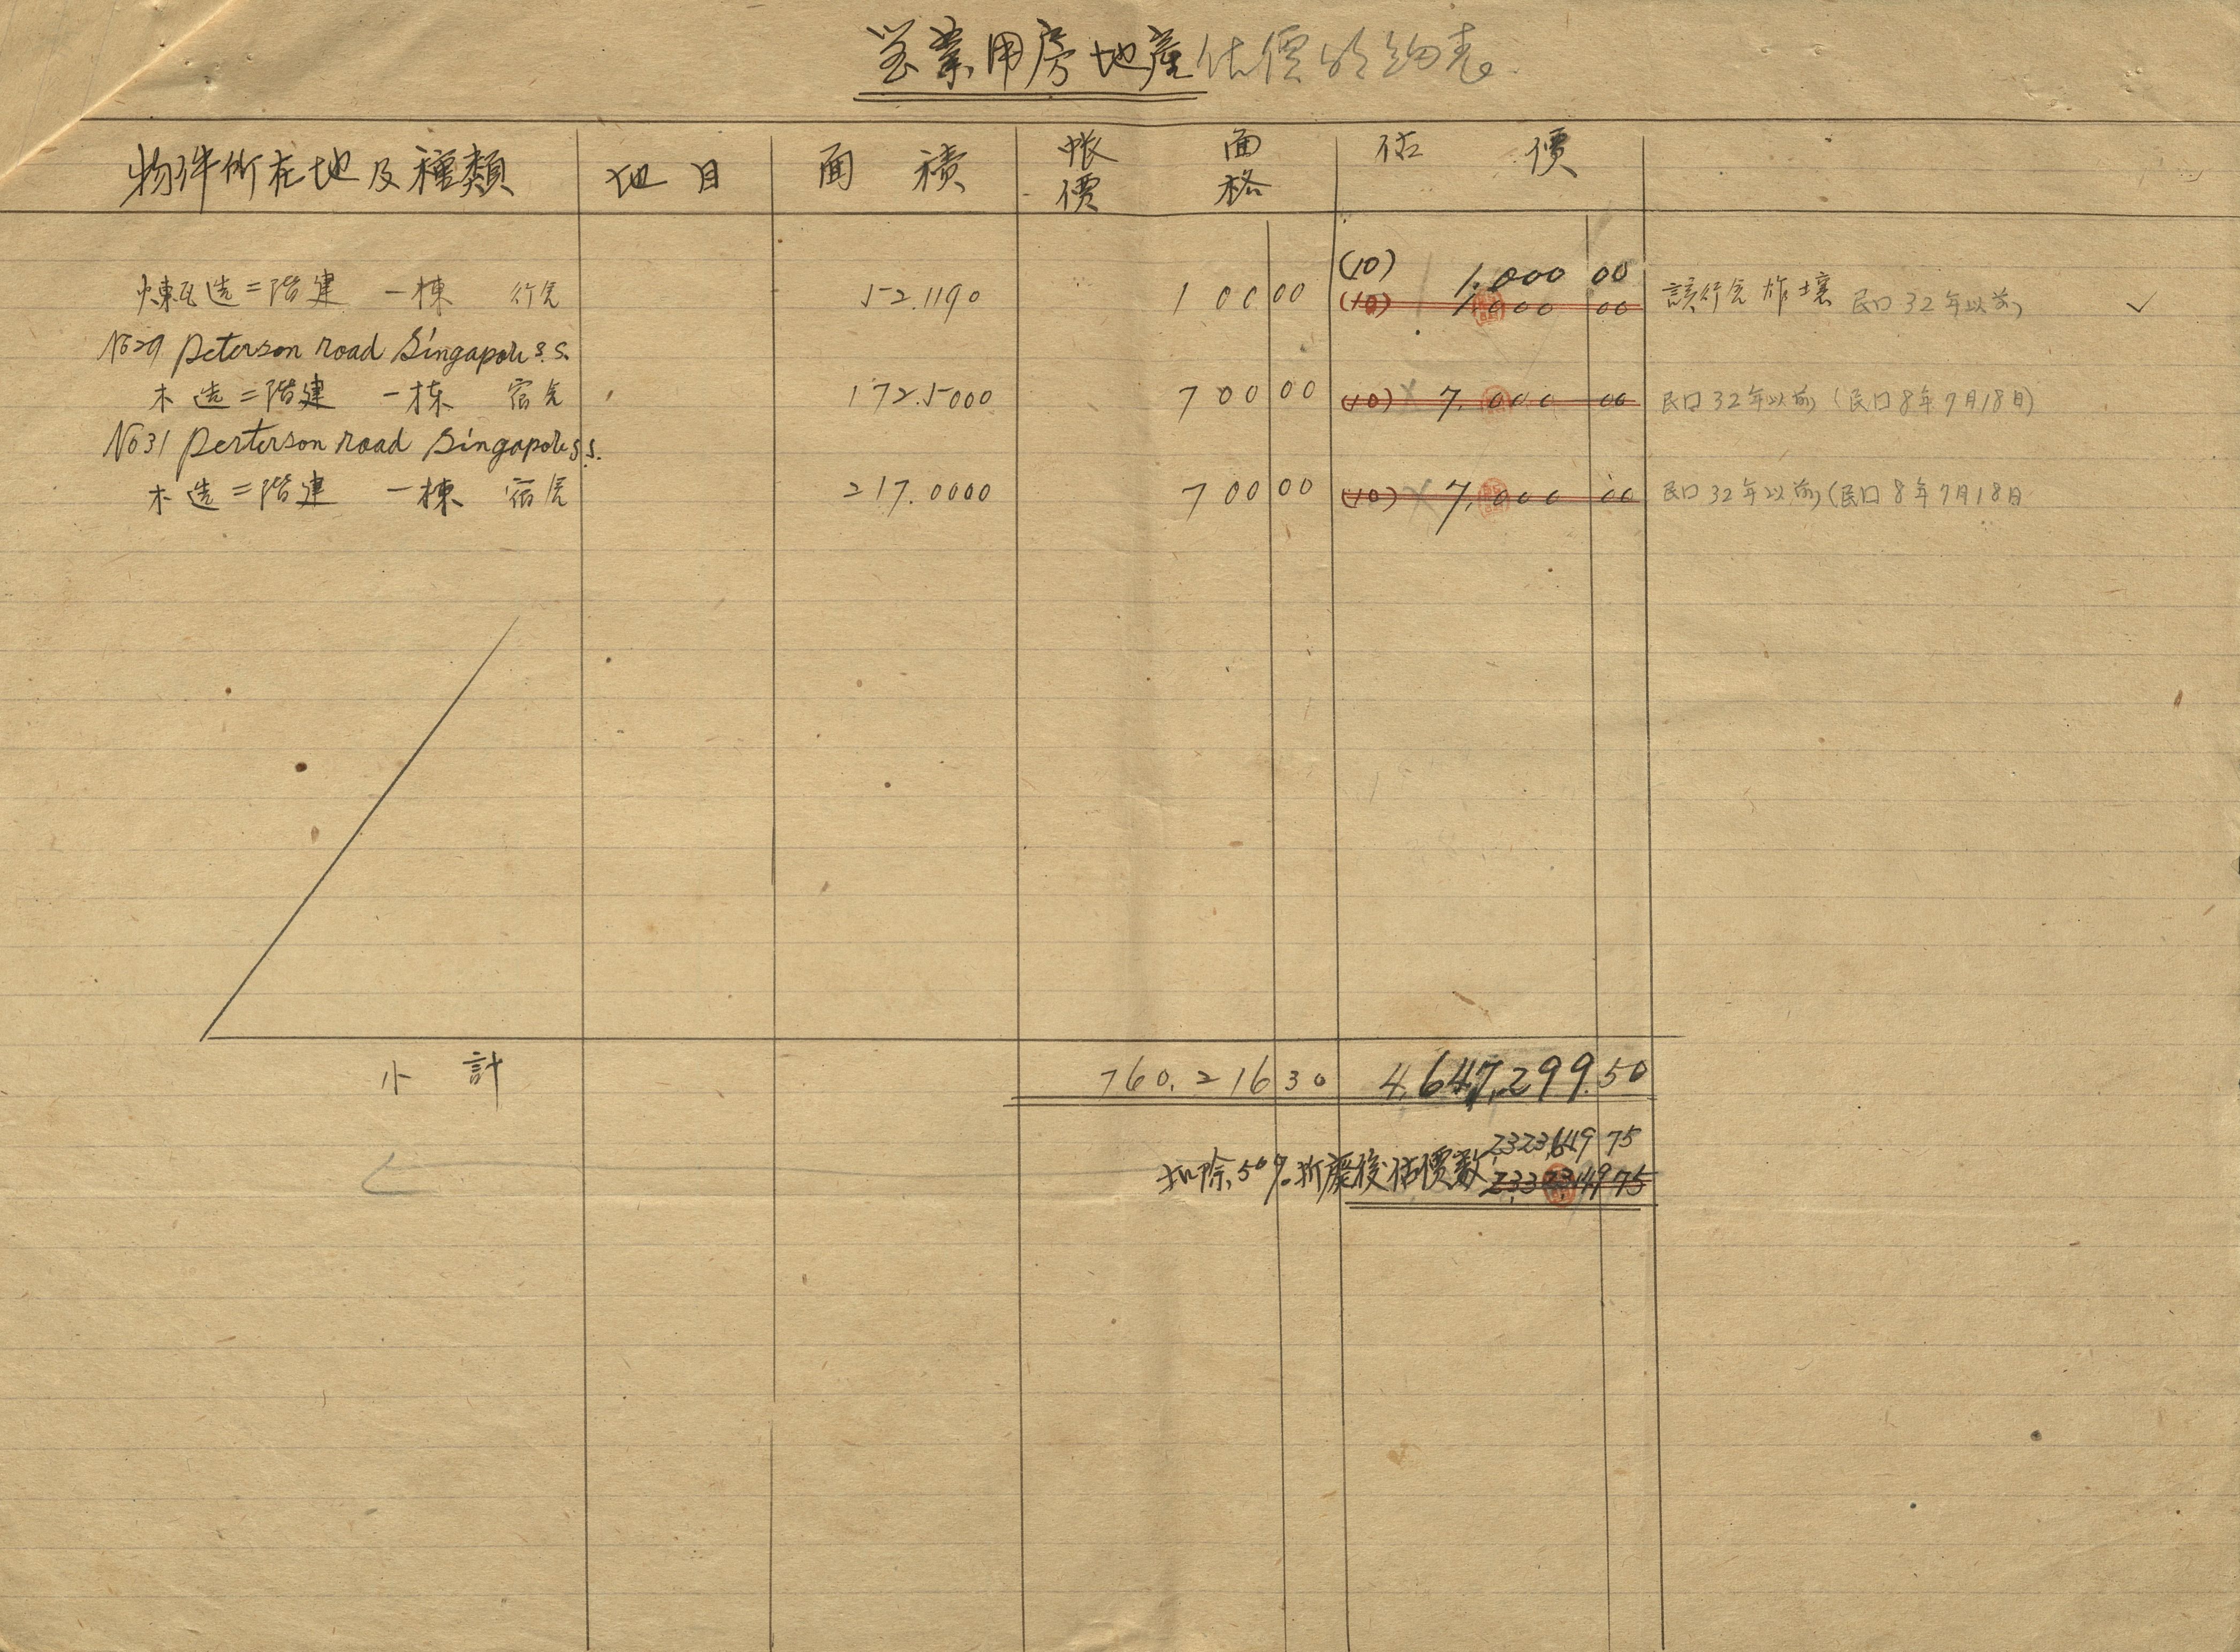 營業用房地產估價明細表
物件所在地及種類 地目 面積 帳面價格 估價
(10) 1,000 00
煉瓦造二階建 一棟 行舍 52.1190 100 00 (10) 1,000 00 該行舍炸壞 民口32年以前 ✓
No29 Peterson road Singapore S.S.
木造二階建 一栋 宿舍 172.5000 700 00 (10) × 7,000 00 民口32年以前 (民口8年7月18日)
No31 Perterson road Singapore S.S.
木造二階建 一棟 宿舍 217.0000 700 00 (10) × 7,000 00 民口32年以前 (民口8年7月18日
小計 760,216 30 4,647,299.50
2,323,649 75
扣除50%折舊後估價數